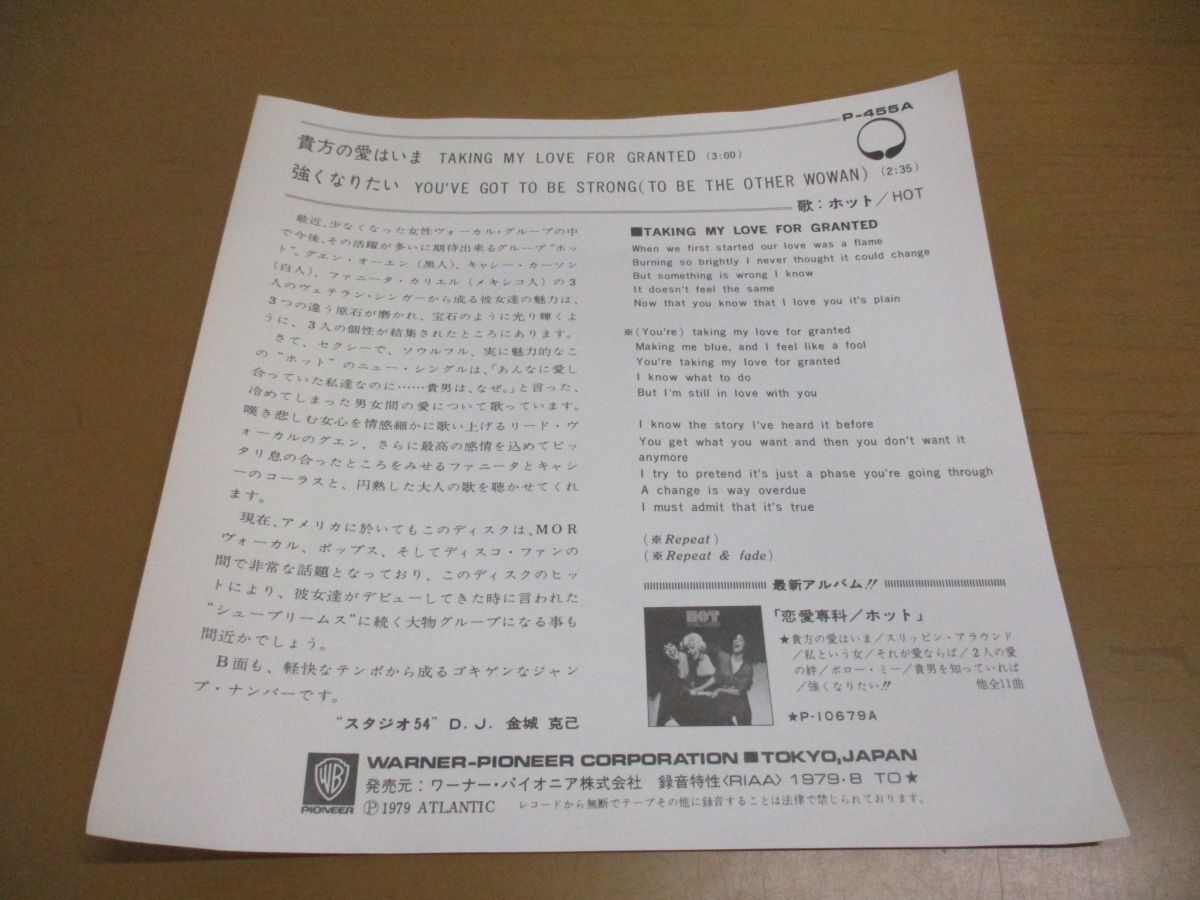 P-455A
貴方の愛はいま TAKING MY LOVE FOR GRANTED (3:00)
強くなりたい YOU'VE GOT TO BE STRONG(TO BE THE OTHER WOWAN) (2:35)
歌：ホット／HOT
最近、少なくなった女性ヴォーカル・グループの中
で今後、その活躍が多いに期待出来るグループ“ホッ
ト”。グエン・オーエン（黒人）、キャシー・カーソン
（白人）、ファニータ・カリエル（メキシコ人）の3
人のヴェテラン・シンガーから成る彼女達の魅力は、
3つの違う原石が磨かれ、宝石のように光り輝くよ
うに、3人の個性が結集されたところにあります。
さて、セクシーで、ソウルフル、実に魅力的なこ
の“ホット”のニュー・シングルは、「あんなに愛し
合っていた私達なのに……貴男は、なぜ。」と言った、
冷めてしまった男女間の愛について歌っています。
嘆き悲しむ女心を情感細かに歌い上げるリード・ヴ
ォーカルのグエン、さらに最高の感情を込めてピッ
タリ息の合ったところをみせるファニータとキャシ
ーのコーラスと、円熟した大人の歌を聴かせてくれ
ます。
現在、アメリカに於いてもこのディスクは、MOR
ヴォーカル、ポップス、そしてディスコ・ファンの
間で非常な話題となっており、このディスクのヒッ
トにより、彼女達がデビューしてきた時に言われた
“シュープリームス”に続く大物グループになる事も
間近かでしょう。
B面も、軽快なテンポから成るゴキゲンなジャン
プ・ナンバーです。
“スタジオ54” D.J. 金城 克己
■TAKING MY LOVE FOR GRANTED
When we first started our love was a flame
Burning so brightly I never thought it could change
But something is wrong I know
It doesn't feel the same
Now that you know that I love you it's plain
※(You're) taking my love for granted
Making me blue, and I feel like a fool
You're taking my love for granted
I know what to do
But I'm still in love with you
I know the story I've heard it before
You get what you want and then you don't want it
anymore
I try to pretend it's just a phase you're going through
A change is way overdue
I must admit that it's true
(※Repeat)
(※Repeat & fade)
最新アルバム!!
HOT
「恋愛専科／ホット」
★貴方の愛はいま／スリッピン・アラウンド
／私という女／それが愛ならば／2人の愛
の絆／ボロー・ミー／貴男を知っていれば
／強くなりたい!! 他全11曲
★P-10679A
WB
PIONEER
WARNER-PIONEER CORPORATION ■ TOKYO, JAPAN
発売元：ワーナー・パイオニア株式会社 録音特性〈RIAA〉1979・8 TO★
Ⓟ1979 ATLANTIC レコードから無断でテープその他に録音することは法律で禁じられております。